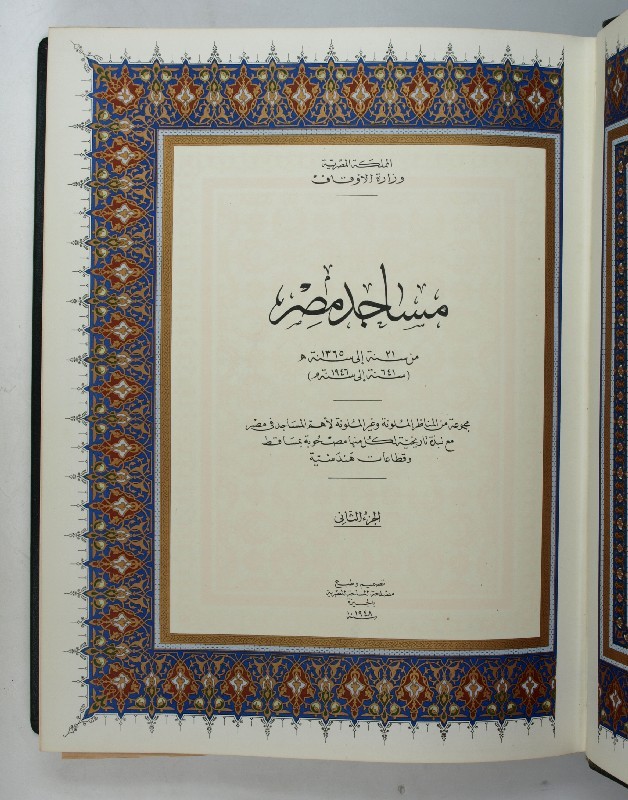 المملكة المصرية
وزارة الأوقاف
مساجد مصر
من سنة ٢١ إلى سنة ١٣٦٥ هـ
(سنة ٦٤١ إلى سنة ١٩٤٦ م)
مجموعة من المناظر الملونة وغير الملونة لأهم المساجد في مصر
مع نبذة تاريخية لكل منها مصحوبة بمساقط
وقطاعات هندسية
الجزء الثاني
تصميم وطبع
مصلحة المساحة المصرية
بالجيزة
سنة ١٩٤٨